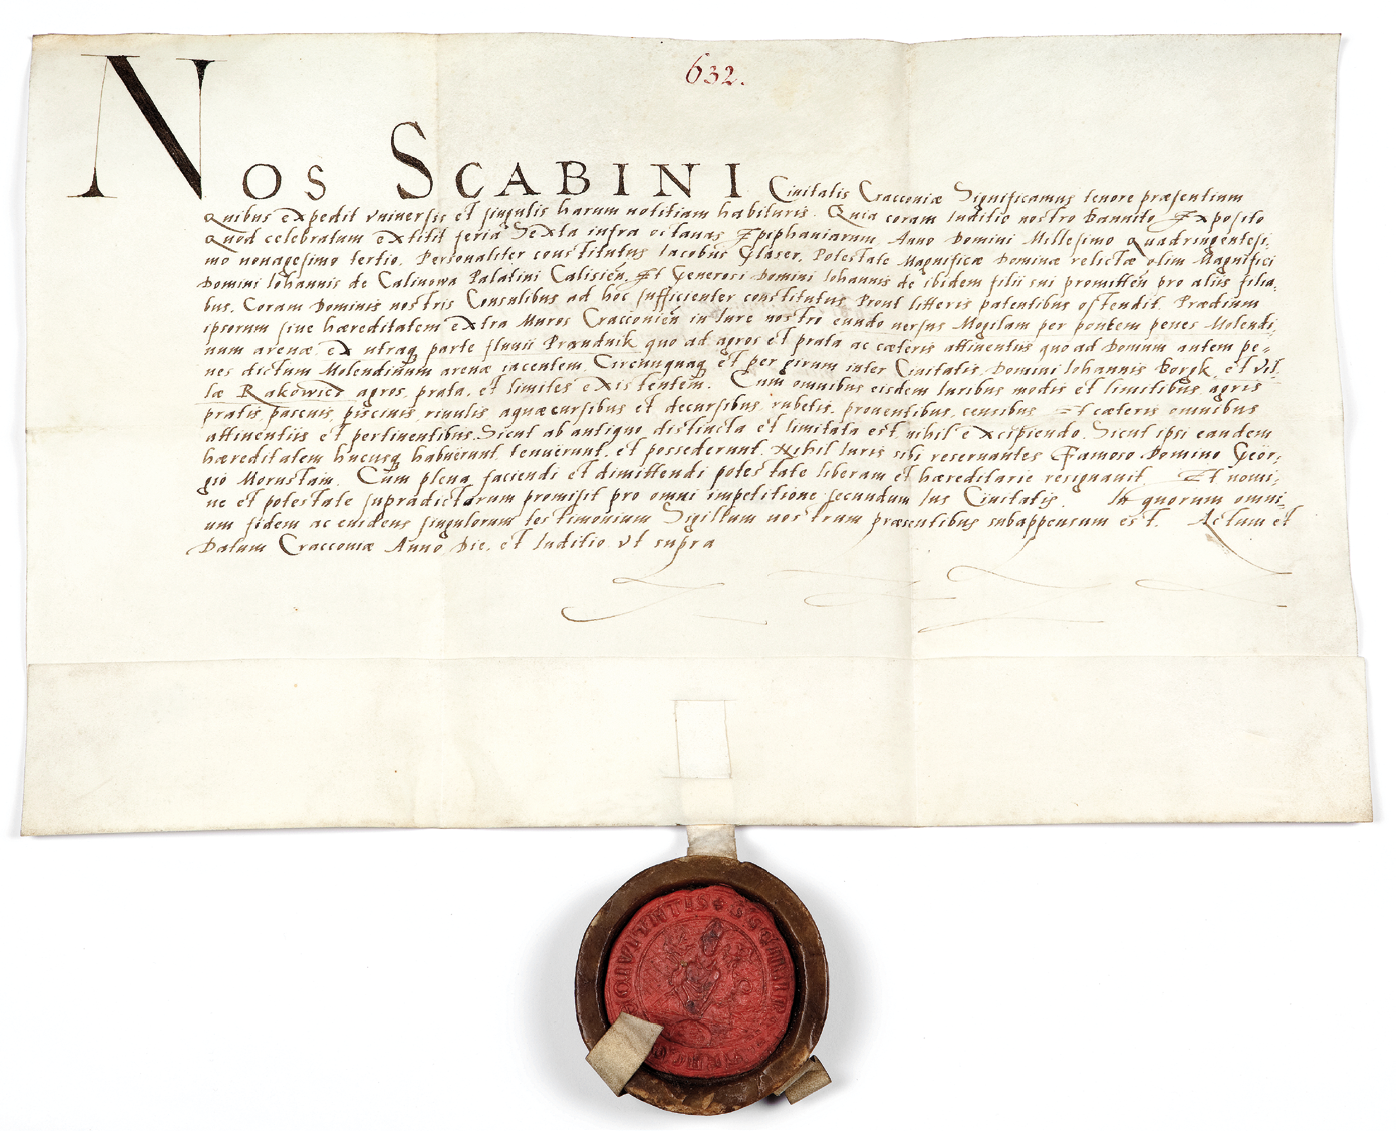 632.
NOS SCABINI Ciuitatis Cracouiæ Significamus tenore præsentium
Quibus expedit vniuersis et singulis harum notitiam habituris. Quia coram Iuditio nostro bannito Exposito
Quod celebratum extitit feria Sexta infra octauas Epiphaniarum Anno Domini Millesimo Quadringentesi,
mo nonagesimo tertio. Personaliter constitutus Iacobus Glaser, Potestate Magnificæ Dominæ relictæ olim Magnifici
Domini Iohannis de Calinowa Palatini Calisień. Et Generosi Domini Iohannis de ibidem filii sui promitteń pro aliis filia,
bus. Coram Dominis nostris Consulibus ad hoc sufficienter constitutus Prout litteris patentibus ostendit. Prædium
ipsorum siue hæreditatem extra Muros Cracouień in Iure nostro eundo versus Mogilam per pontem penes Molendi,
num arenæ ex utraq parte fluuii Prandnik quo ad agros et prata ac cæteris attinentiis quo ad Domum autem pe,
nes dictum Molendinum arenæ iacentem. Circumquaq et per girum inter Ciuitatis Domini Iohannis Borgk, et vil,
læ Rakowicz agros, prata, et limites existentem. Cum omnibus eisdem Iuribus modis et limitibus, agris
pratis, pascuis, piscinis, riuulis, aquæcursibus et decursibus, rubetis, prouentibus, censibus Et cæteris omnibus
attinentiis et pertinentibus. Sicut ab antiquo distincta et limitata est, nihil excipiendo. Sicut ipsi eandem
hæreditatem hucusq habuerunt, tenuerunt, et possederunt. Nihil Iuris sibi reservantes Famoso Domino Geor,
gio Mornstain. Cum plena faciendi et dimittendi potestate liberam et hæreditarie resignauit. Et nomi,
ne et potestate supradictarum promisit pro omni impetitione secundum Ius Ciuitatis. In quorum omni,
um fidem ac euidens singulorum testimonium Sigillum nostrum præsentibus subappensum est. Actum et
Datum Cracouiæ Anno Die, et Iuditio vt supra